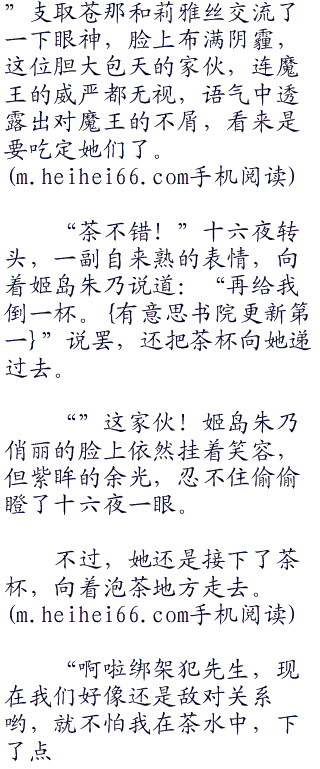 ”支取苍那和莉雅丝交流了
一下眼神，脸上布满阴霾，
这位胆大包天的家伙，连魔
王的威严都无视，语气中透
露出对魔王的不屑，看来是
要吃定她们了。
(m.heihei66.com手机阅读)
“茶不错！”十六夜转
头，一副自来熟的表情，向
着姬岛朱乃说道：“再给我
倒一杯。{有意思书院更新第
一}”说罢，还把茶杯向她递
过去。
“”这家伙！姬岛朱乃
俏丽的脸上依然挂着笑容，
但紫眸的余光，忍不住偷偷
瞪了十六夜一眼。
不过，她还是接下了茶
杯，向着泡茶地方走去。
(m.heihei66.com手机阅读)
“啊啦绑架犯先生，现
在我们好像还是敌对关系
哟，就不怕我在茶水中，下
了点